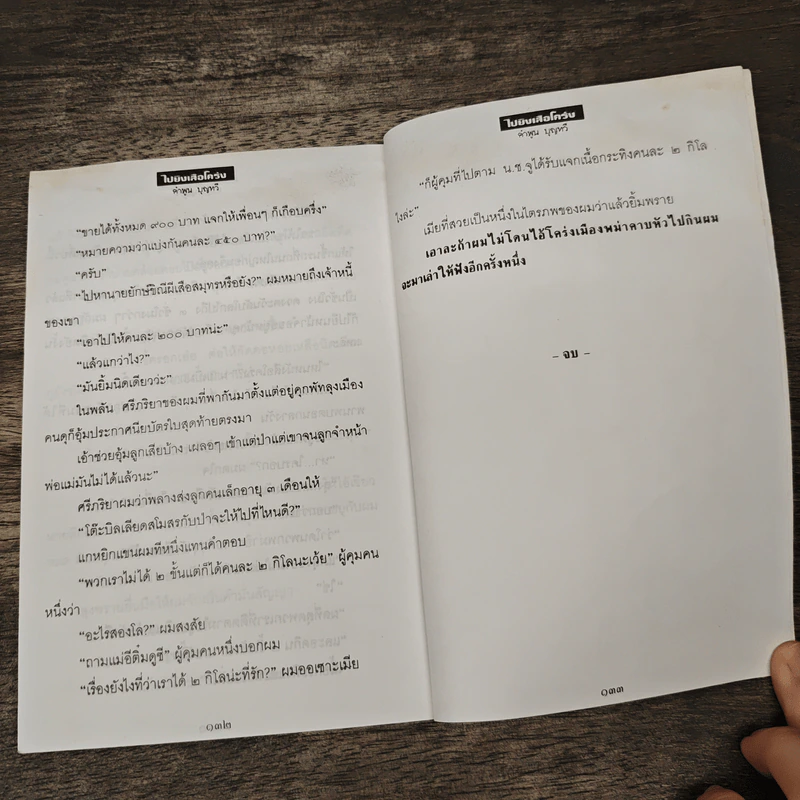 ไปยิงเสือโคร่ง
คำพูน บุญทวี
“ขายได้ทั้งหมด ๙๐๐ บาท แจกให้เพื่อนๆ ก็เกือบครึ่ง”
“หมายความว่าแบ่งกันคนละ ๔๕๐ บาท?”
“ครับ”
“ไปหานายยักษ์ขิณีผีเสือสมุทรหรือยัง?” ผมหมายถึงเจ้าหนี้
ของเขา
“เอาไปให้คนละ ๒๐๐ บาทน่ะ”
“แล้วแกว่าไง?”
“มันยิ้มนิดเดียวว่ะ”
ในพลัน ศรีภริยาของผมที่พากันมาตั้งแต่อยู่คุกพัทลุงเมือง
คนดุก็อุ้มประกาศนียบัตรใบสุดท้ายตรงมา
เอ้าช่วยอุ้มลูกเสียบ้าง เผลอๆ เข้าแต่ป่าแต่เขาจนลูกจำหน้า
พ่อแม่มันไม่ได้แล้วนะ”
ศรีภริยาผมว่าพลางส่งลูกคนเล็กอายุ ๓ เดือนให้
“โต๊ะบิลเลียดสโมสรกับป่าจะให้ไปที่ไหนดี?”
แกหยิกแขนผมทีหนึ่งแทนคำตอบ
“พวกเราไม่ได้ ๒ ขั้นแต่ก็ได้คนละ ๒ กิโลนะเว้ย” ผู้คุมคน
หนึ่งว่า
“อะไรสองโล?” ผมสงสัย
“ถามแม่อีติ๋มดูซี” ผู้คุมคนหนึ่งบอกผม
“เรื่องยังไงที่ว่าเราได้ ๒ กิโลน่ะที่รัก?” ผมออเซาะเมีย
๑๓๒
ไปยิงเสือโคร่ง
คำพูน บุญทวี
“ก็ผู้คุมที่ไปตาม น.ช.จูได้รับแจกเนื้อกระทิงคนละ ๒ กิโล
ไงล่ะ” เมียที่สวยเป็นหนึ่งในไตรภพของผมว่าแล้วยิ้มพราย
เอาละถ้าผมไม่โดนไอ้โคร่งเมืองพม่าคาบหัวไปกินผม
จะมาเล่าให้ฟังอีกครั้งหนึ่ง
– จบ –
๑๓๓